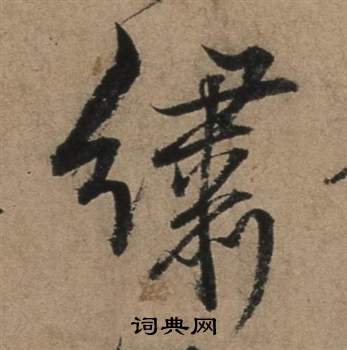 繡
词典网